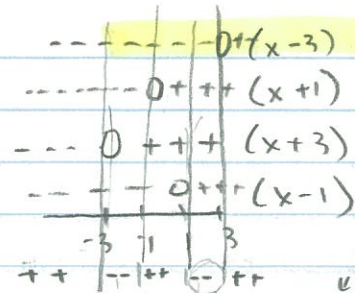 - - - - - - - 0 + + (x-3)
- - - - - - - - 0 + + + (x+1)
- - - 0 + + + (x+3)
- - - - 0 + + + (x-1)
-3 -1 1 3
+ + - - + + - - + +